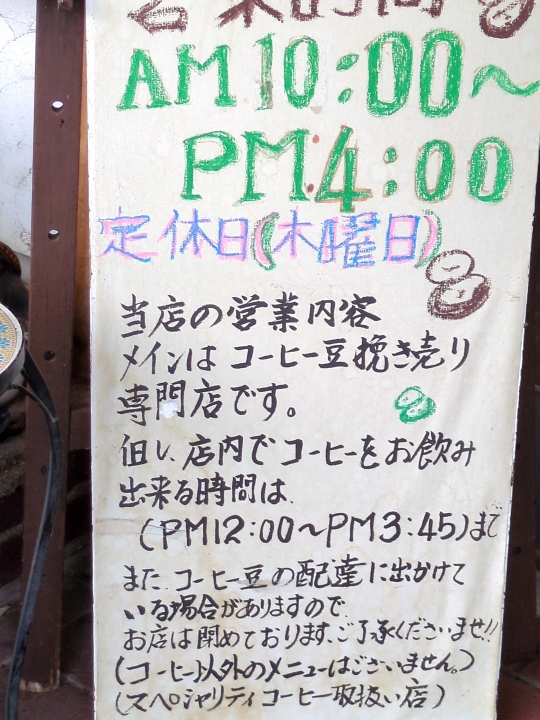 営業時間
AM10:00～
PM4:00
定休日(木曜日)
当店の営業内容
メインはコーヒー豆挽き売り
専門店です。
但し、店内でコーヒーをお飲み
出来る時間は、
(PM12:00～PM3:45)まで
また、コーヒー豆の配達に出かけて
いる場合がありますので、
お店は閉めております、ご了承くださいませ!!
(コーヒー以外のメニューはございません。)
(スペシャリティコーヒー取扱い店)